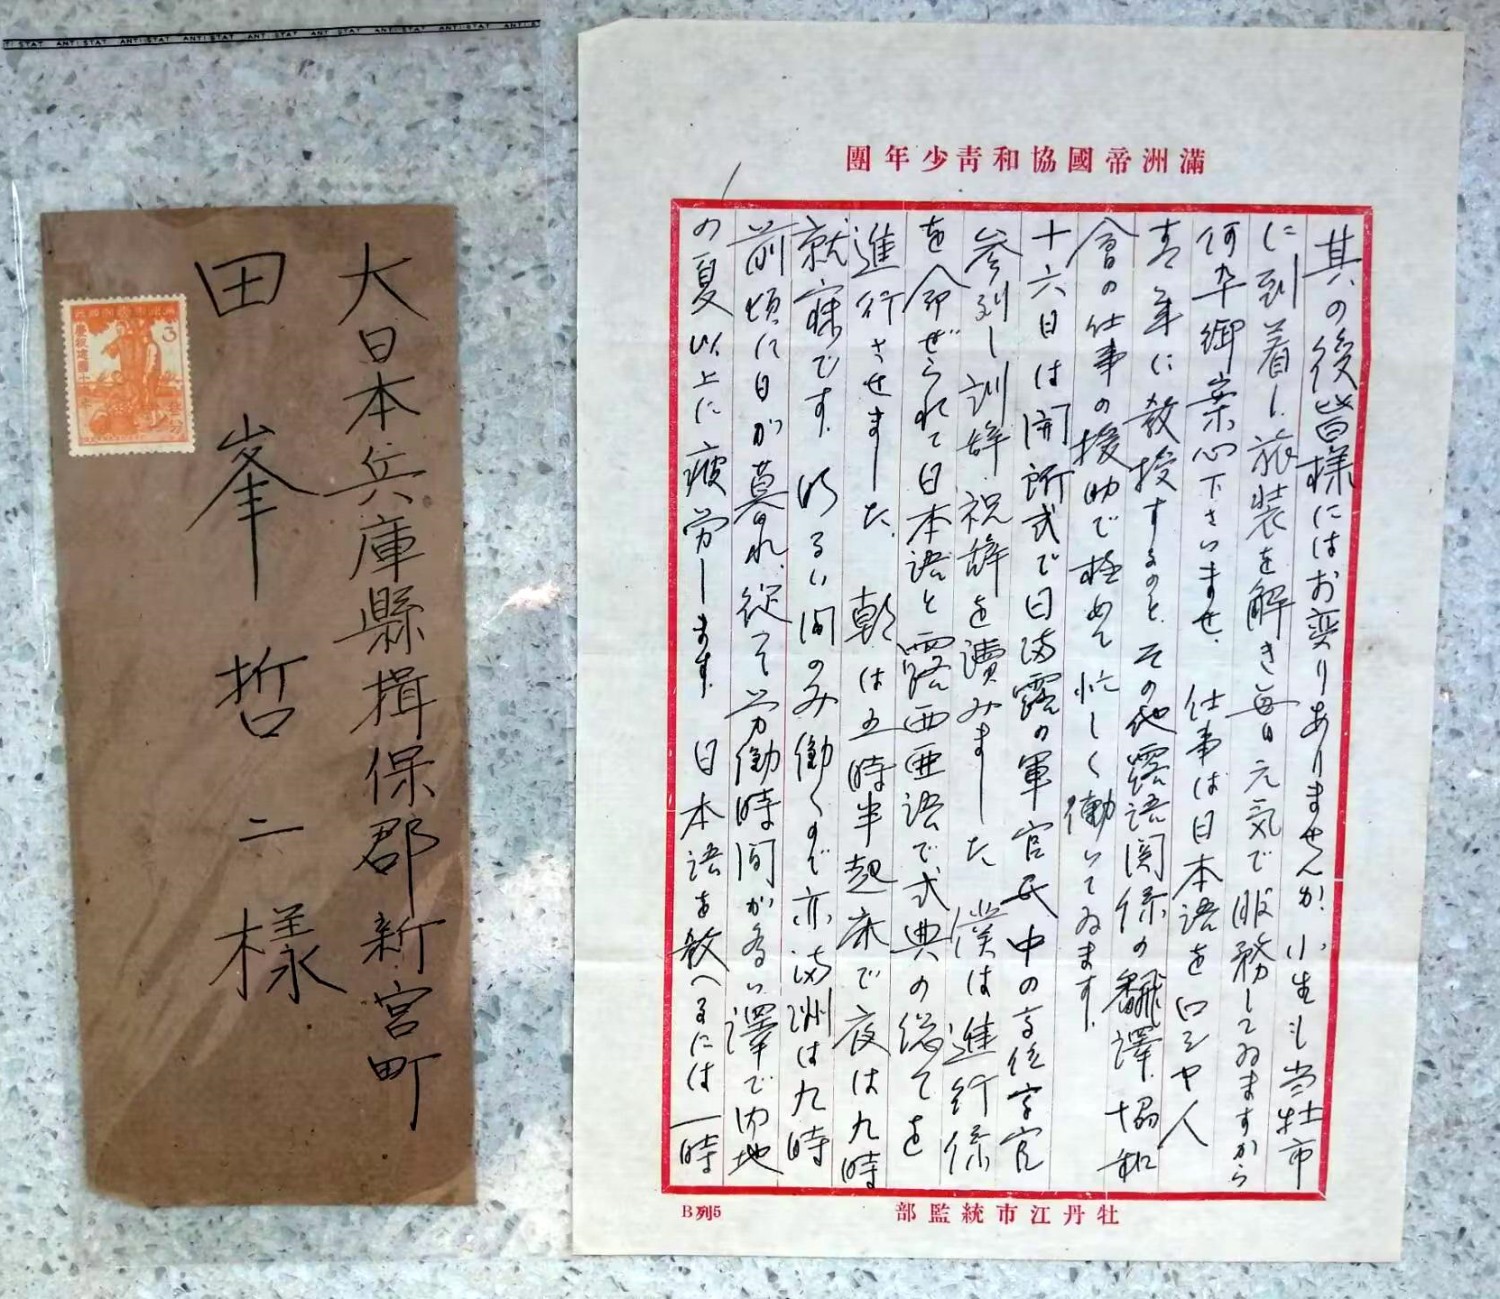 ANTI:STAT ANTI:STAT ANTI:STAT ANTI:STAT ANTI:STAT ANTI:STAT ANTI:STAT
大日本兵庫縣揖保郡新宮町
田峯哲二様
3
團年少靑和協國帝洲滿
其の後皆様にはお変りありませんか、小生も当牡市
に到着し旅装を解き毎日元気で服務してゐますから
何卒御案心下さいませ、仕事は日本語をロシヤ人
青年に教授するのと、その他露語関係の翻譯、協和
會の仕事の援助で極めて忙しく働いてゐます。
十六日は開所式で日満露の軍官民中の高位高官
参列し訓辞、祝辞を讀みました 僕は進行係
を命ぜられて日本語と露西亜語で式典の総てを
進行させました、朝は五時半起床で夜は九時
就寐です、明るい間のみ働くので亦満洲は九時
前頃に日が暮れ、從って労働時間が多い譯で内地
の夏以上に疲労します、日本語を教へるには一時
部監統市江丹牡
B列5